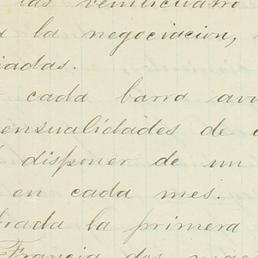 las veinticuatro
a la negociacion,
iadas.
cada barra avi
ensualidades de c
disponer de un
en cada mes.
brada la primera
Francia dos